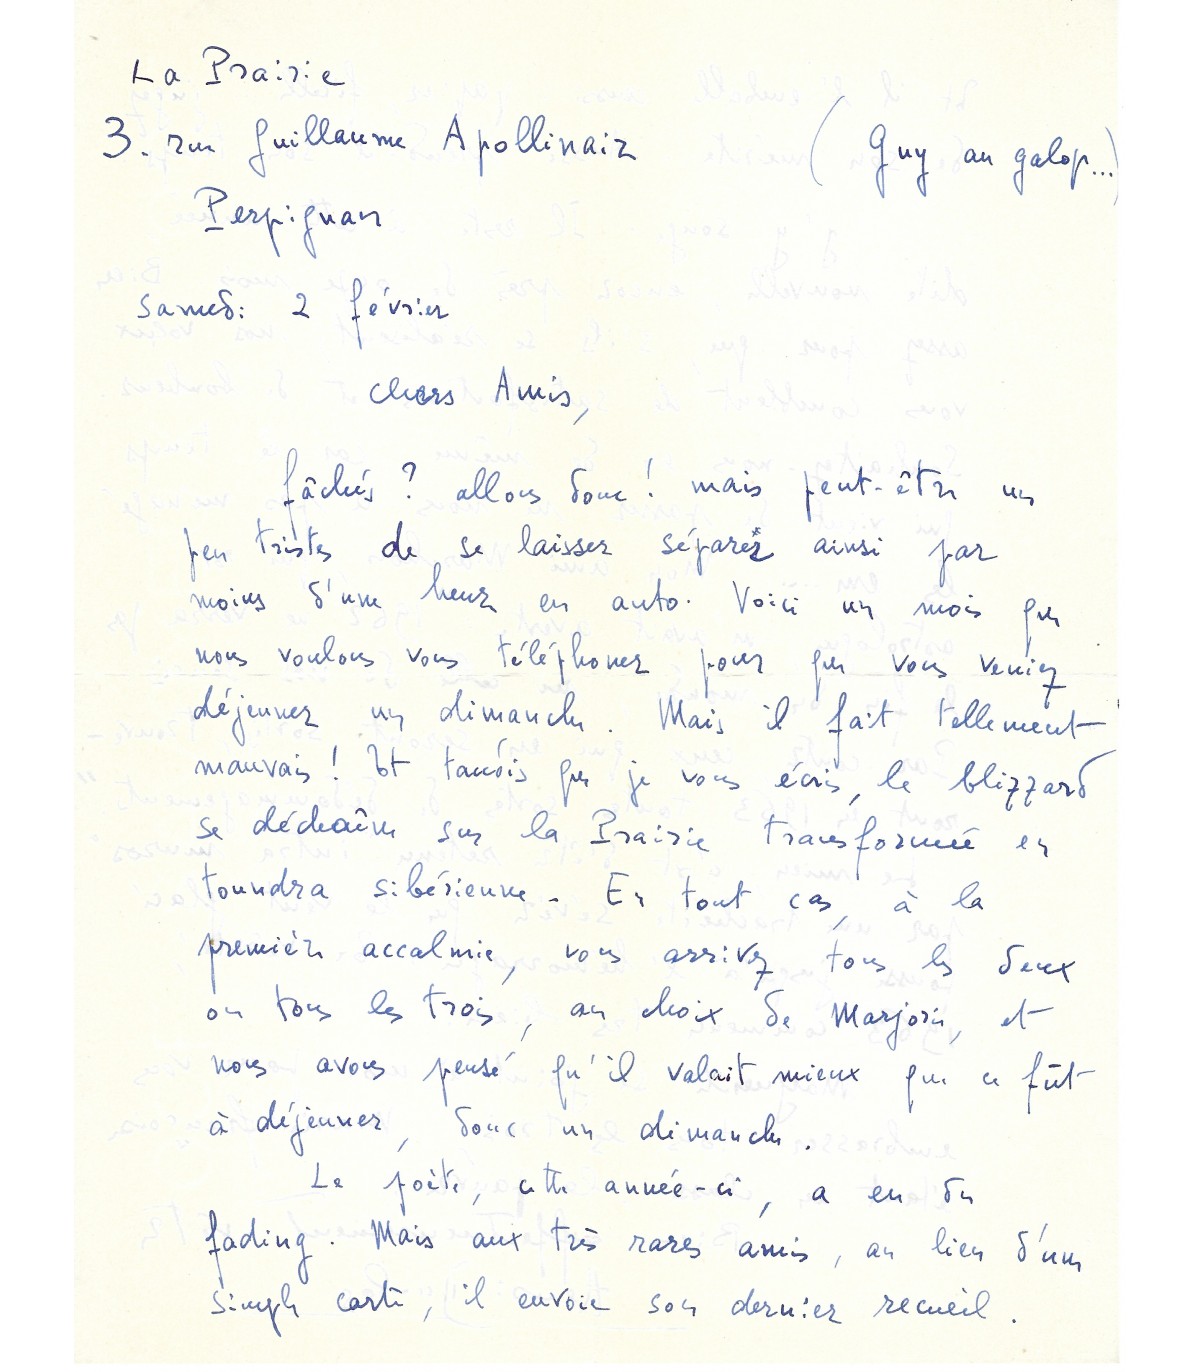 La Prairie
3. rue Guillaume Apollinaire
(Guy au galop...)
Perpignan
Samedi 2 février
Chers Amis,
Fâchés ? allons donc ! mais peut-être un
peu tristes de se laisser séparer ainsi par
moins d'une heure en auto. Voici un mois que
nous voulons vous téléphoner pour que vous veniez
déjeuner un dimanche. Mais il fait tellement
mauvais ! Et tandis que je vous écris, le blizzard
se déchaîne sur la Prairie transformée en
toundra sibérienne - En tout cas, à la
première accalmie, vous arrivez tous les deux
ou tous les trois, au choix de Marjorie, et
nous avons pensé qu'il valait mieux que ce fût
à déjeuner, donc un dimanche.
Le poète, cette année-ci, a eu du
fading. Mais aux très rares amis, au lieu d'une
simple carte, il envoie son dernier recueil.